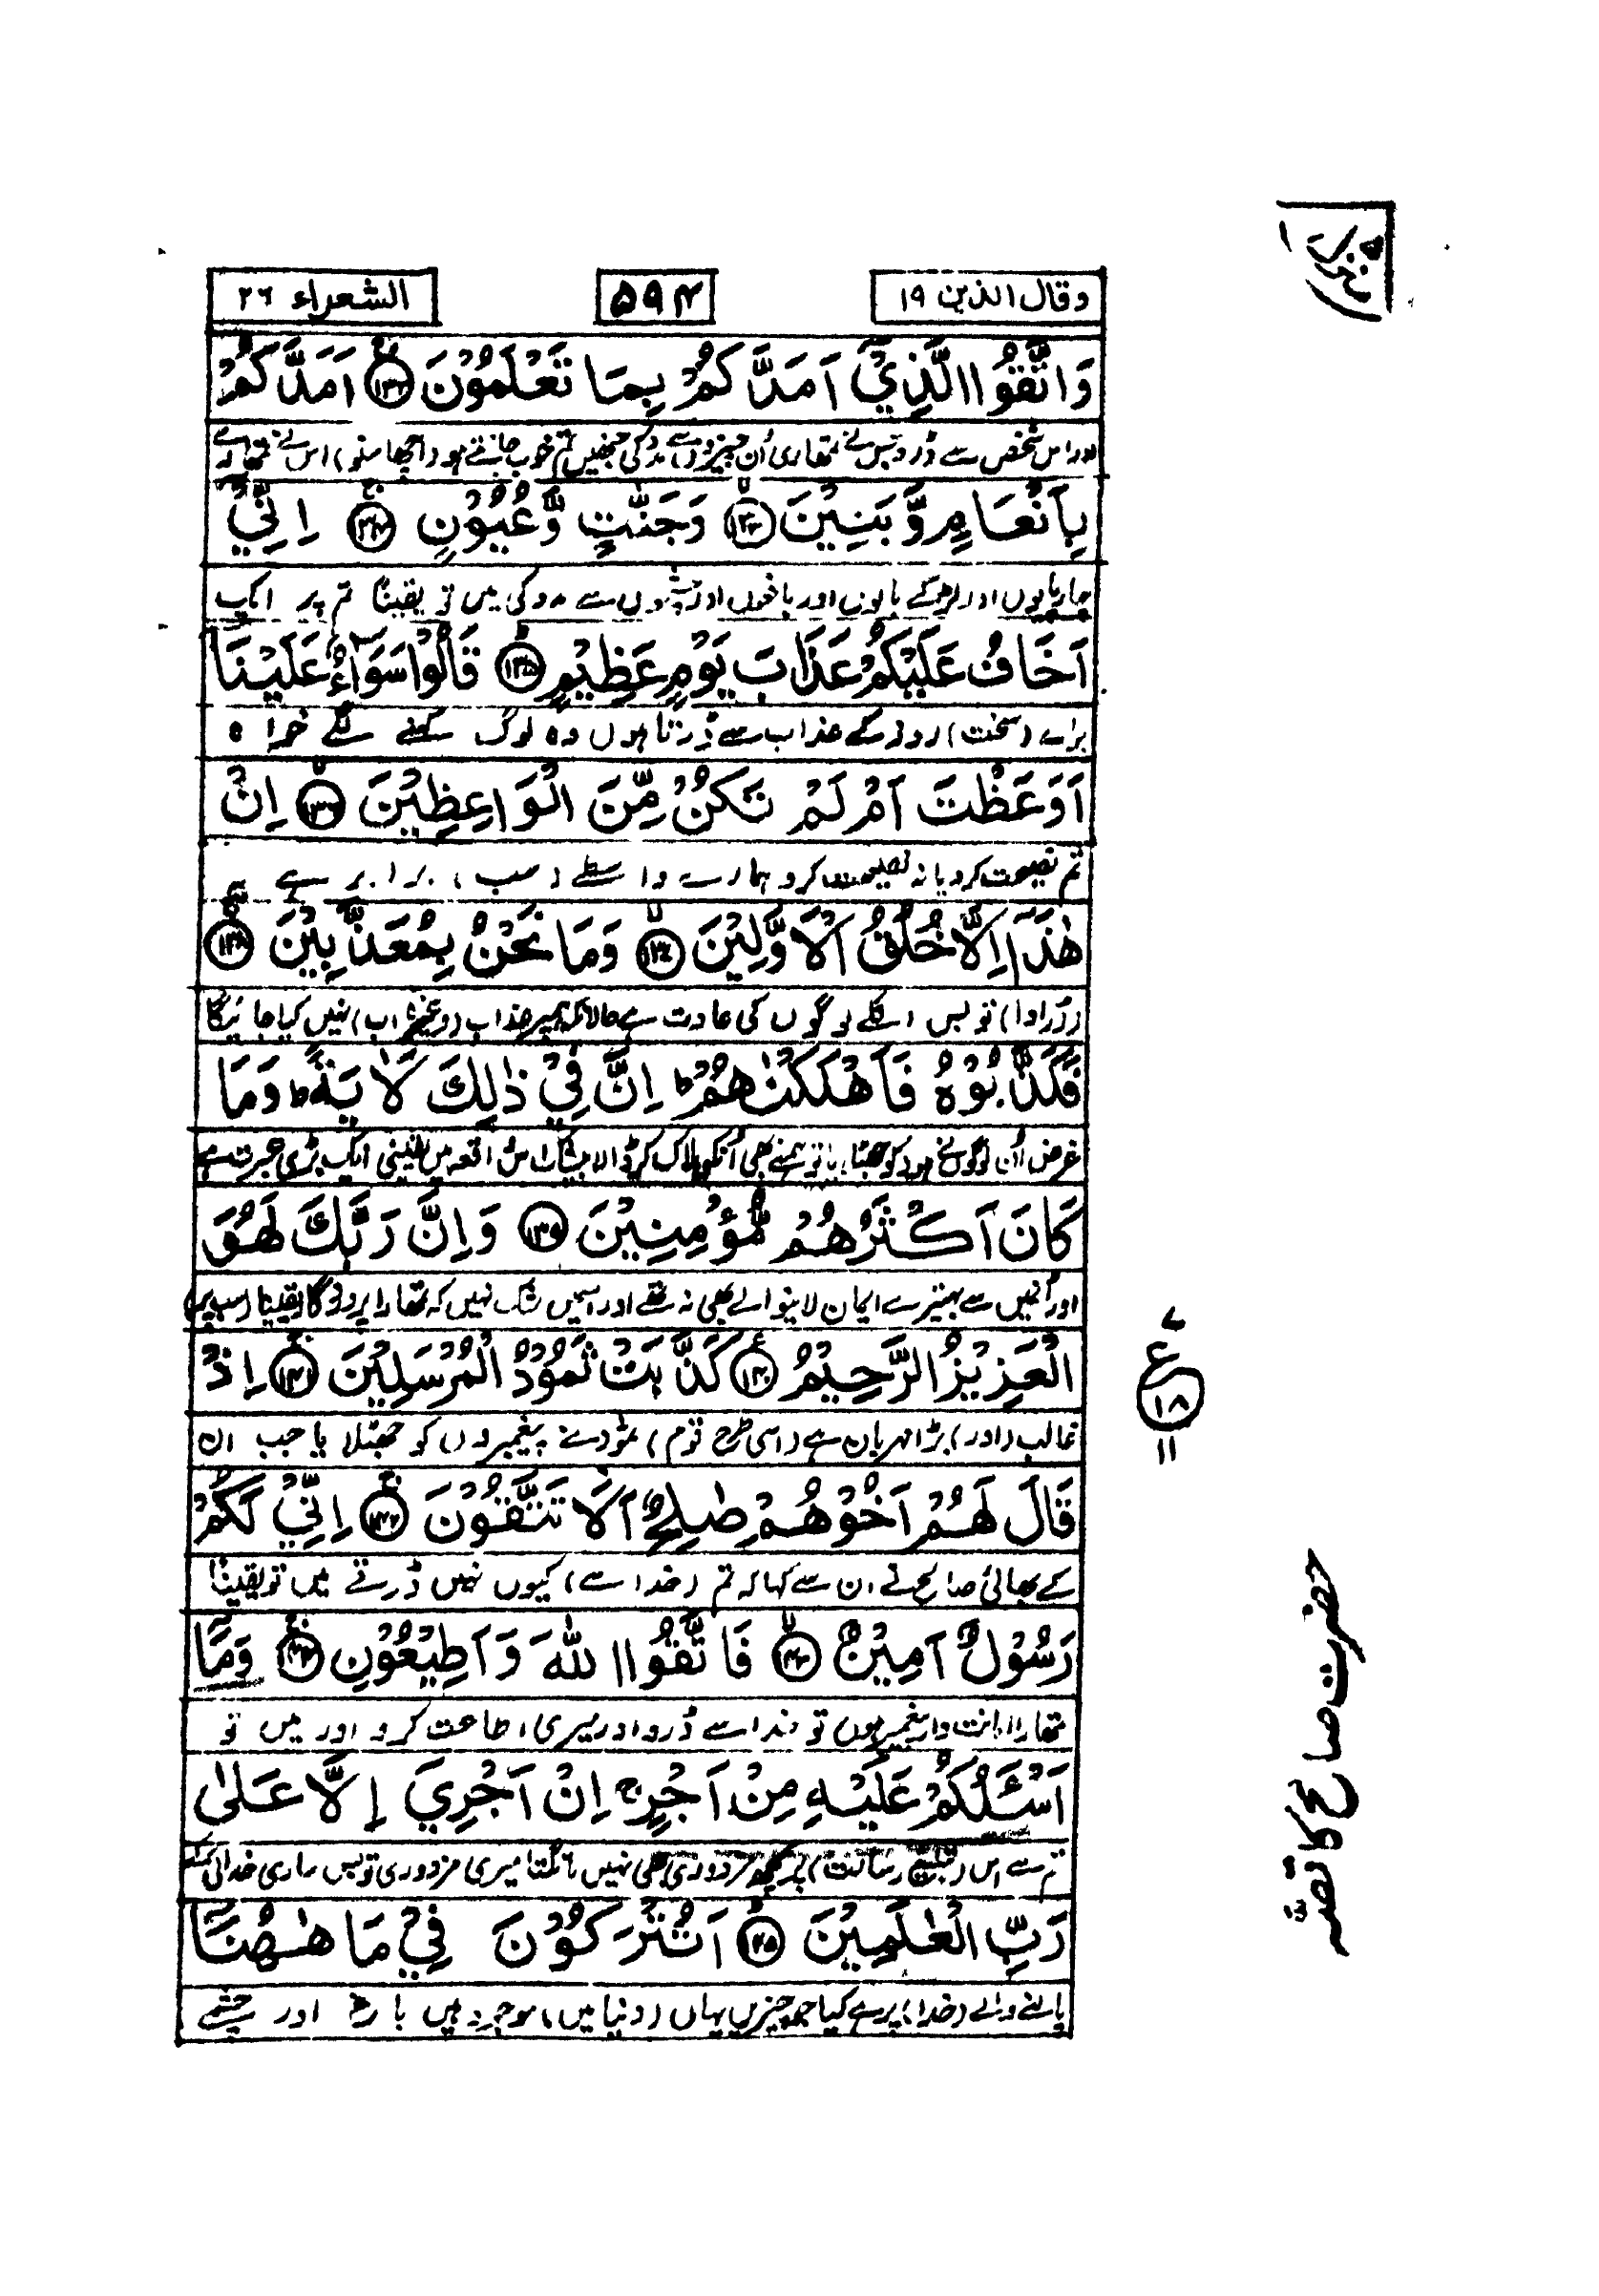 وقال الذین ۱۹
۵۹۴
الشعراء ۲۶
وَاتَّقُوا الَّذِيْٓ اَمَدَّكُمْ بِمَا تَعْلَمُوْنَ ۱۳۲ اَمَدَّكُمْ
اور اس شخص سے ڈرو جس نے تمھاری اُن چیزوں سے مدد کی جنھیں تم خوب جانتے ہو (اچھا سنو) اس نے تمھارے
بِاَنْعَامٍ وَّبَنِيْنَ ۱۳۳ وَجَنّٰتٍ وَّعُيُوْنٍ ۱۳۴ اِنِّيْٓ
چارپایوں اور لڑکے بالوں اور باغوں اور چشموں سے مدد کی میں تو یقیناً تم پر ایک
اَخَافُ عَلَيْكُمْ عَذَابَ يَوْمٍ عَظِيْمٍ ۱۳۵ قَالُوْا سَوَآءٌ عَلَيْنَآ
بڑے (سخت) روز کے عذاب سے ڈرتا ہوں وہ لوگ کہنے لگے خواہ
اَوَعَظْتَ اَمْ لَمْ تَكُنْ مِّنَ الْوَاعِظِيْنَ ۱۳۶ اِنْ
تم نصیحت کرو یا نہ نصیحت کرو ہمارے واسطے (سب) برابر ہے
هٰذَآ اِلَّا خُلُقُ الْاَوَّلِيْنَ ۱۳۷ وَمَا نَحْنُ بِمُعَذَّبِيْنَ ۱۳۸
(ڈراوا) تو بس اگلے لوگوں کی عادت ہے حالانکہ ہمپر عذاب (وغیرہ اب) نہیں کیا جائیگا
فَكَذَّبُوْهُ فَاَهْلَكْنٰهُمْ ؕ اِنَّ فِيْ ذٰلِكَ لَاٰيَةً ؕ وَمَا
غرض اُن لوگوں نے ہود کو جھٹلایا تو ہمنے بھی اُنکو ہلاک کر ڈالا بیشک اس واقعہ میں یقینی ایک بڑی عبرت ہے
كَانَ اَكْثَرُهُمْ مُّؤْمِنِيْنَ ۱۳۹ وَاِنَّ رَبَّكَ لَهُوَ
اور اُنمیں سے بہتیرے ایمان لانیوالے بھی نہ تھے اور اسمیں شک نہیں کہ تمھارا پروردگار یقیناً (سب پر)
الْعَزِيْزُ الرَّحِيْمُ ۱۴۰ كَذَّبَتْ ثَمُوْدُ الْمُرْسَلِيْنَ ۱۴۱ اِذْ
غالب (اور) بڑا مہربان ہے (اسی طرح قوم) ثمود نے پیغمبروں کو جھٹلایا جب ان
قَالَ لَهُمْ اَخُوْهُمْ صٰلِحٌ اَلَا تَتَّقُوْنَ ۱۴۲ اِنِّيْ لَكُمْ
کے بھائی صالح نے ان سے کہا کہ تم (خدا سے) کیوں نہیں ڈرتے میں تو یقیناً
رَسُوْلٌ اَمِيْنٌ ۱۴۳ فَاتَّقُوا اللّٰهَ وَاَطِيْعُوْنِ ۱۴۴ وَمَآ
تمھارا امانت دار پیغمبر ہوں تو خدا سے ڈرو اور میری اطاعت کرو اور میں تو
اَسْئَلُكُمْ عَلَيْهِ مِنْ اَجْرٍ ۚ اِنْ اَجْرِيَ اِلَّا عَلٰى
تم سے اس (تبلیغ رسالت) پر کچھ مزدوری بھی نہیں مانگتا میری مزدوری تو بس ساری خدائی کے
رَبِّ الْعٰلَمِيْنَ ۱۴۵ اَتُتْرَكُوْنَ فِيْ مَا هٰهُنَآ
پالنے والے (خدا) پر ہے کیا جو چیزیں یہاں (دنیا میں) موجود ہیں باغ اور چشمے
۷
ع
۱۸
۱۱
حضرت صالح کا قصّہ